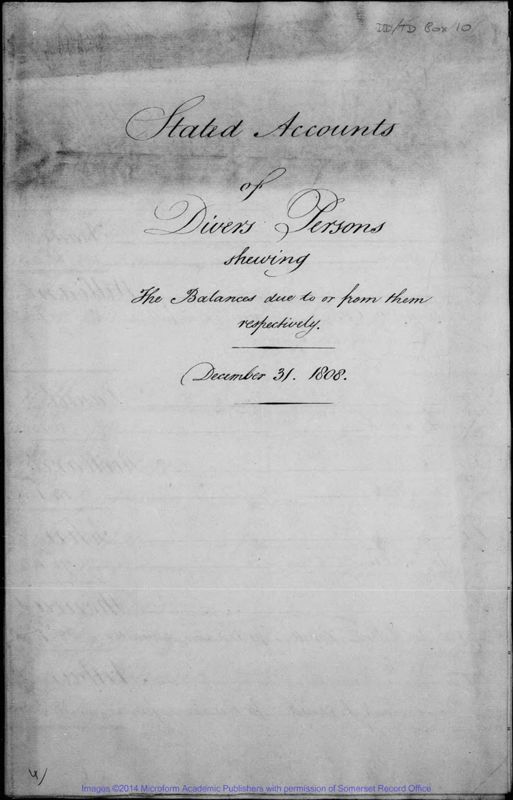 DD/TD Box 10
Stated Accounts
of
Divers Persons
shewing
The Balances due to or from them
respectively.
December 31. 1808.
4)
Images ©2014 Microform Academic Publishers with permission of Somerset Record Office